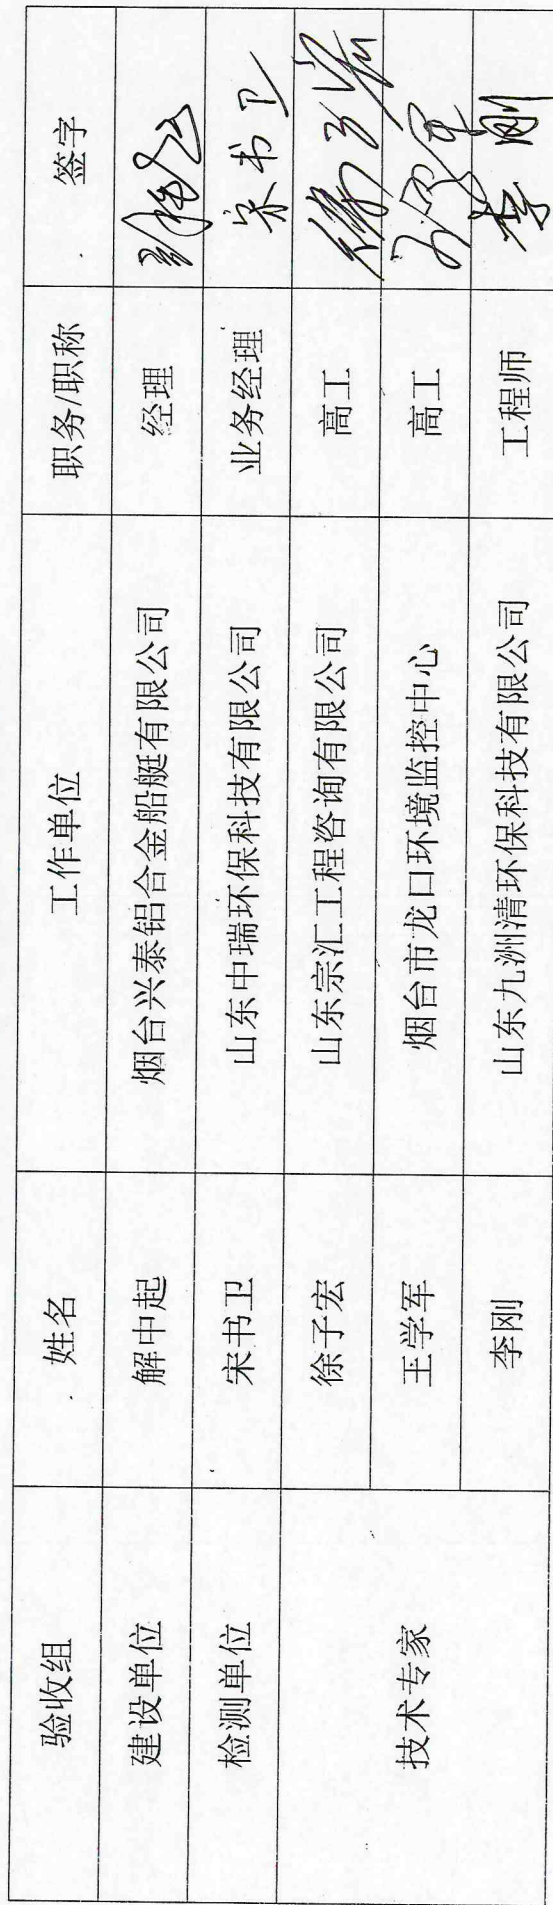 验收组 姓名 工作单位 职务/职称 签字
建设单位 解中起 烟台兴泰铝合金船艇有限公司 经理
检测单位 宋书卫 山东中瑞环保科技有限公司 业务经理 宋书卫
技术专家 徐子宏 山东宗汇工程咨询有限公司 高工 徐子宏
王学军 烟台市龙口环境监控中心 高工
李刚 山东九洲清环保科技有限公司 工程师 李刚